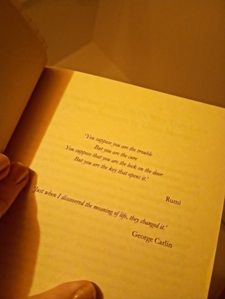 "You suppose you are the trouble
But you are the cure
You suppose that you are the lock on the door
But you are the key that opens it."
Rumi
"Just when I discovered the meaning of life, they changed it."
George Carlin